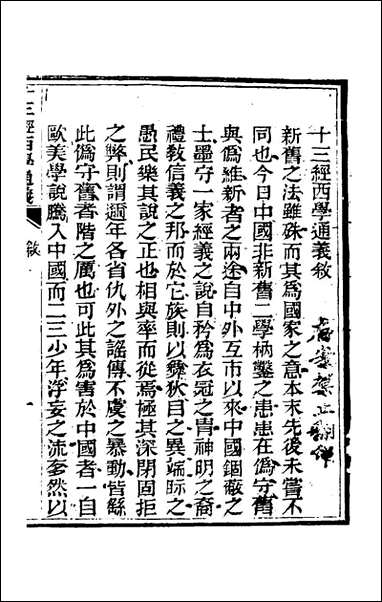 十三經西學通義敘
新舊之法雖殊而其爲國家之意本末先後未嘗不
同也今日中國非新舊二學枘鑿之患患在僞守舊
與僞維新者之兩途自中外互市以來中國錮蔽之
士墨守一家經義之說自矜爲衣冠之胄神明之裔
禮教信義之邦而於它族則以彝狄目之異端眎之
愚民樂其說之正也相與率而從焉極其深閉固拒
之弊則謂邇年各省仇外之謠傳不虞之暴動皆繇
此僞守舊者階之厲也可此其爲害於中國者一自
歐美學說騰入中國而二三少年浮妄之流奎然以
十三經西學通義
敘